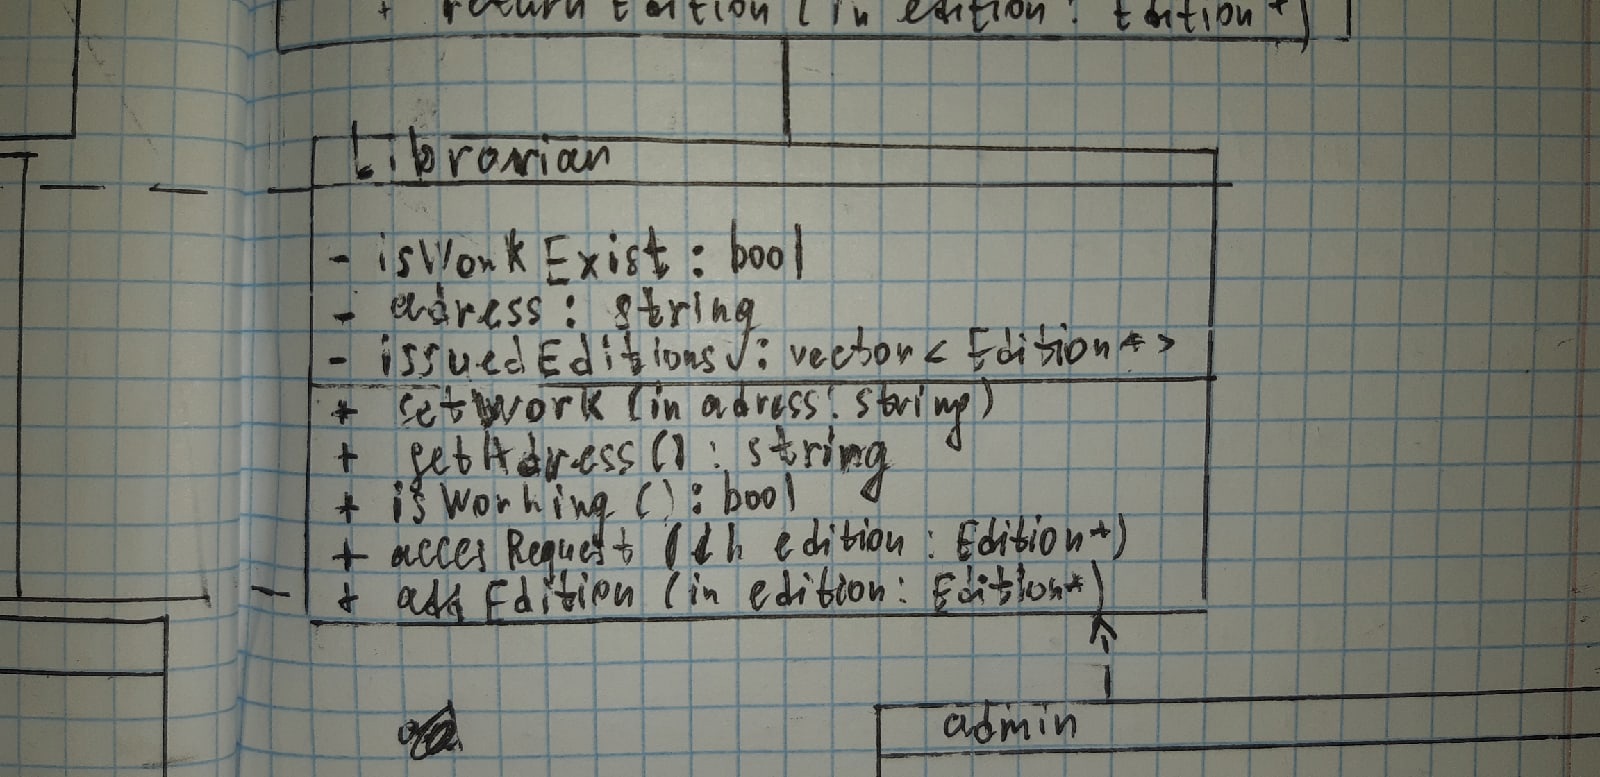 + return Edition (in edition: Edition*)
Librarian
- isWorkExist : bool
- adress : string
- issuedEditions : vector < Edition* >
+ setWork (in adress: string)
+ getAdress() : string
+ isWorking () : bool
+ acces Request (in edition : Edition*)
+ add Edition (in edition: Edition*)
admin